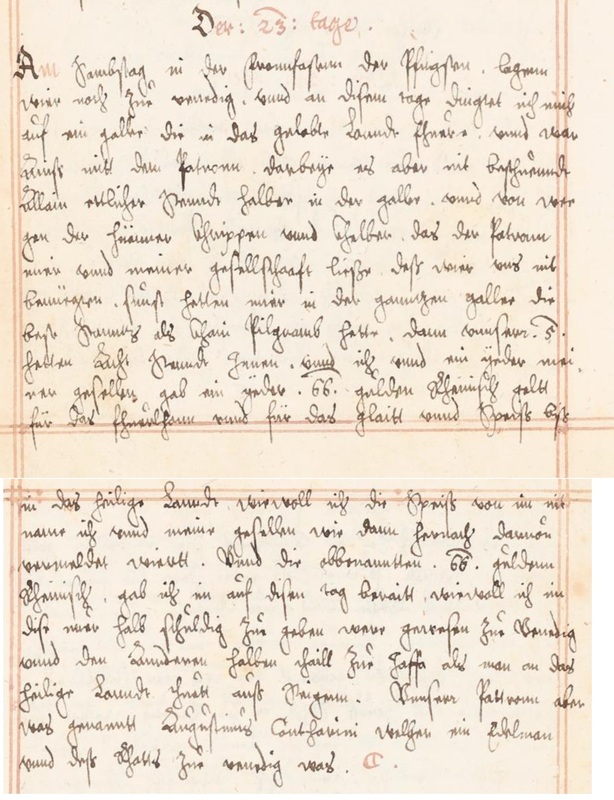 Der: 23: tage.
Am Sambstag in der Fronnfassten der Pfingsten. lagenn
wier noch zue venedig. vnnd an disem tage dingtet ich mich
auf ein gallee die in das gelobte Lanndt fhuere. vnnd war
ains mitt dem Patronn. darbeÿe es aber nit beschuennde
Allain ettlicher Stennde halber in der gallee. vnnd von we
gen der hüenner Khrippen vnnd Khelber. das der Patronn
mier vnnd meiner gesellschaaft liesße. deß wier vns nit
benüegten. sunst hetten mier in der ganntzen gallee die
besste Stannts als Khain Pilgramb hette. dann vnnserr. 5.
hetten Acht Stennde Innen. vnnd ich vnnd ein ÿeder mei
ner gesellen gab ein ÿeder. 66. gulden Rheinisch gellt
für das fhuerlhonn vnnd für das glaitt vnnd Speiß biß
in das heilige Lanndt. wiewoll ich die Speiß von im nit
name ich vnnd meine gesellen wie dann hernach daruon
vermeldet wiertt. Vnnd die obbenanntten. 66. guldenn
Rheinisch. gab ich im auf disen tag beraitt. wiewoll ich im
dise nuer halb schuldig zue geben were gewesen zue Venedig
vnnd den Annderen halben thaill zue Jaffa als man an das
heilige Lanndt thuett auß Steigenn. Vnnserr Pattronn aber
was genanntt Augustinus Contharini welher ein Edelman
vnnd deß Rhatts zue venedig was. C.